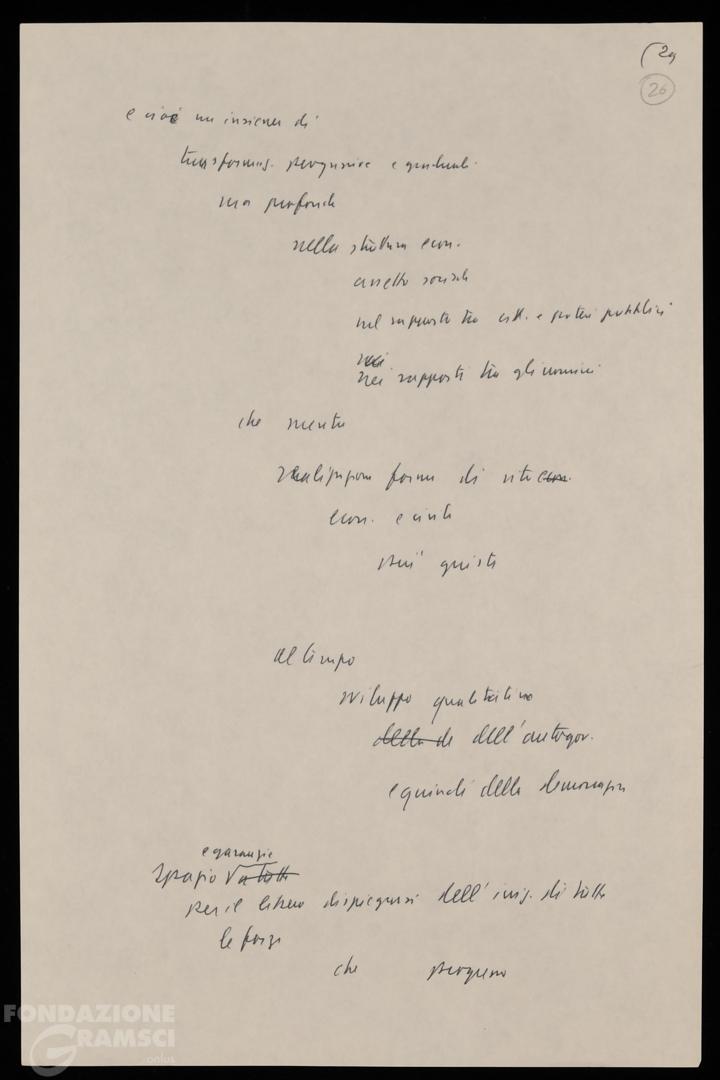 (29
26
e cioè un insieme di
trasformaz. progressive e graduali
ma profonde
nella struttura econ.
assetto sociale
nel rapporto tra citt. e poteri pubblici
nei
nei rapporti tra gli uomini
che mentre
realizzano forme di vita econ.
econ. e civile
più giuste
al tempo
sviluppo qualitativo
della de dell'autogov.
e quindi della democrazia
e garanzie
spazio a tutti
per il libero dispiegarsi dell'iniz. di tutte
le forze
che
FONDAZIONE
GRAMSCI
onlus